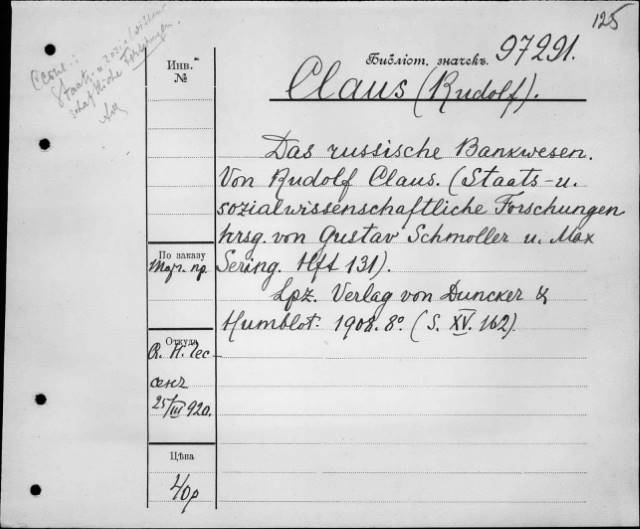 125
Ссыл.:
Staats- sozialwissen
schaftliche Forschungen.
Инв.
№
Библіот. значекъ 97291.
Claus (Rudolf).
Das russische Bankwesen.
Von Rudolf Claus. (Staats- u.
sozialwissenschaftliche Forschungen
hrsg. von Gustav Schmoller u. Max
Sering. Hft 131).
Lpz. Verlag von Duncker &
Humblot. 1908. 8° (S. XV. 162)
По заказу
Маг. пр.
Откуда
сенъ
25/III 920.
Цѣна
40р